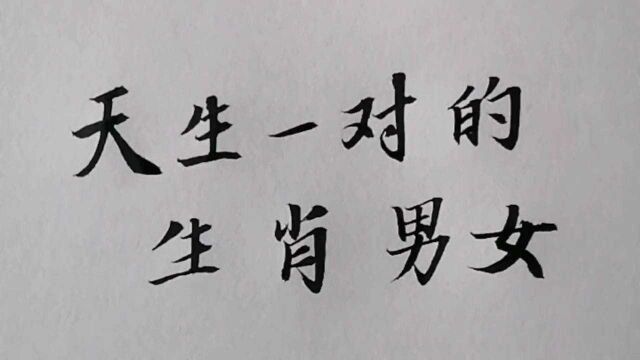 天生一对的
生肖男女